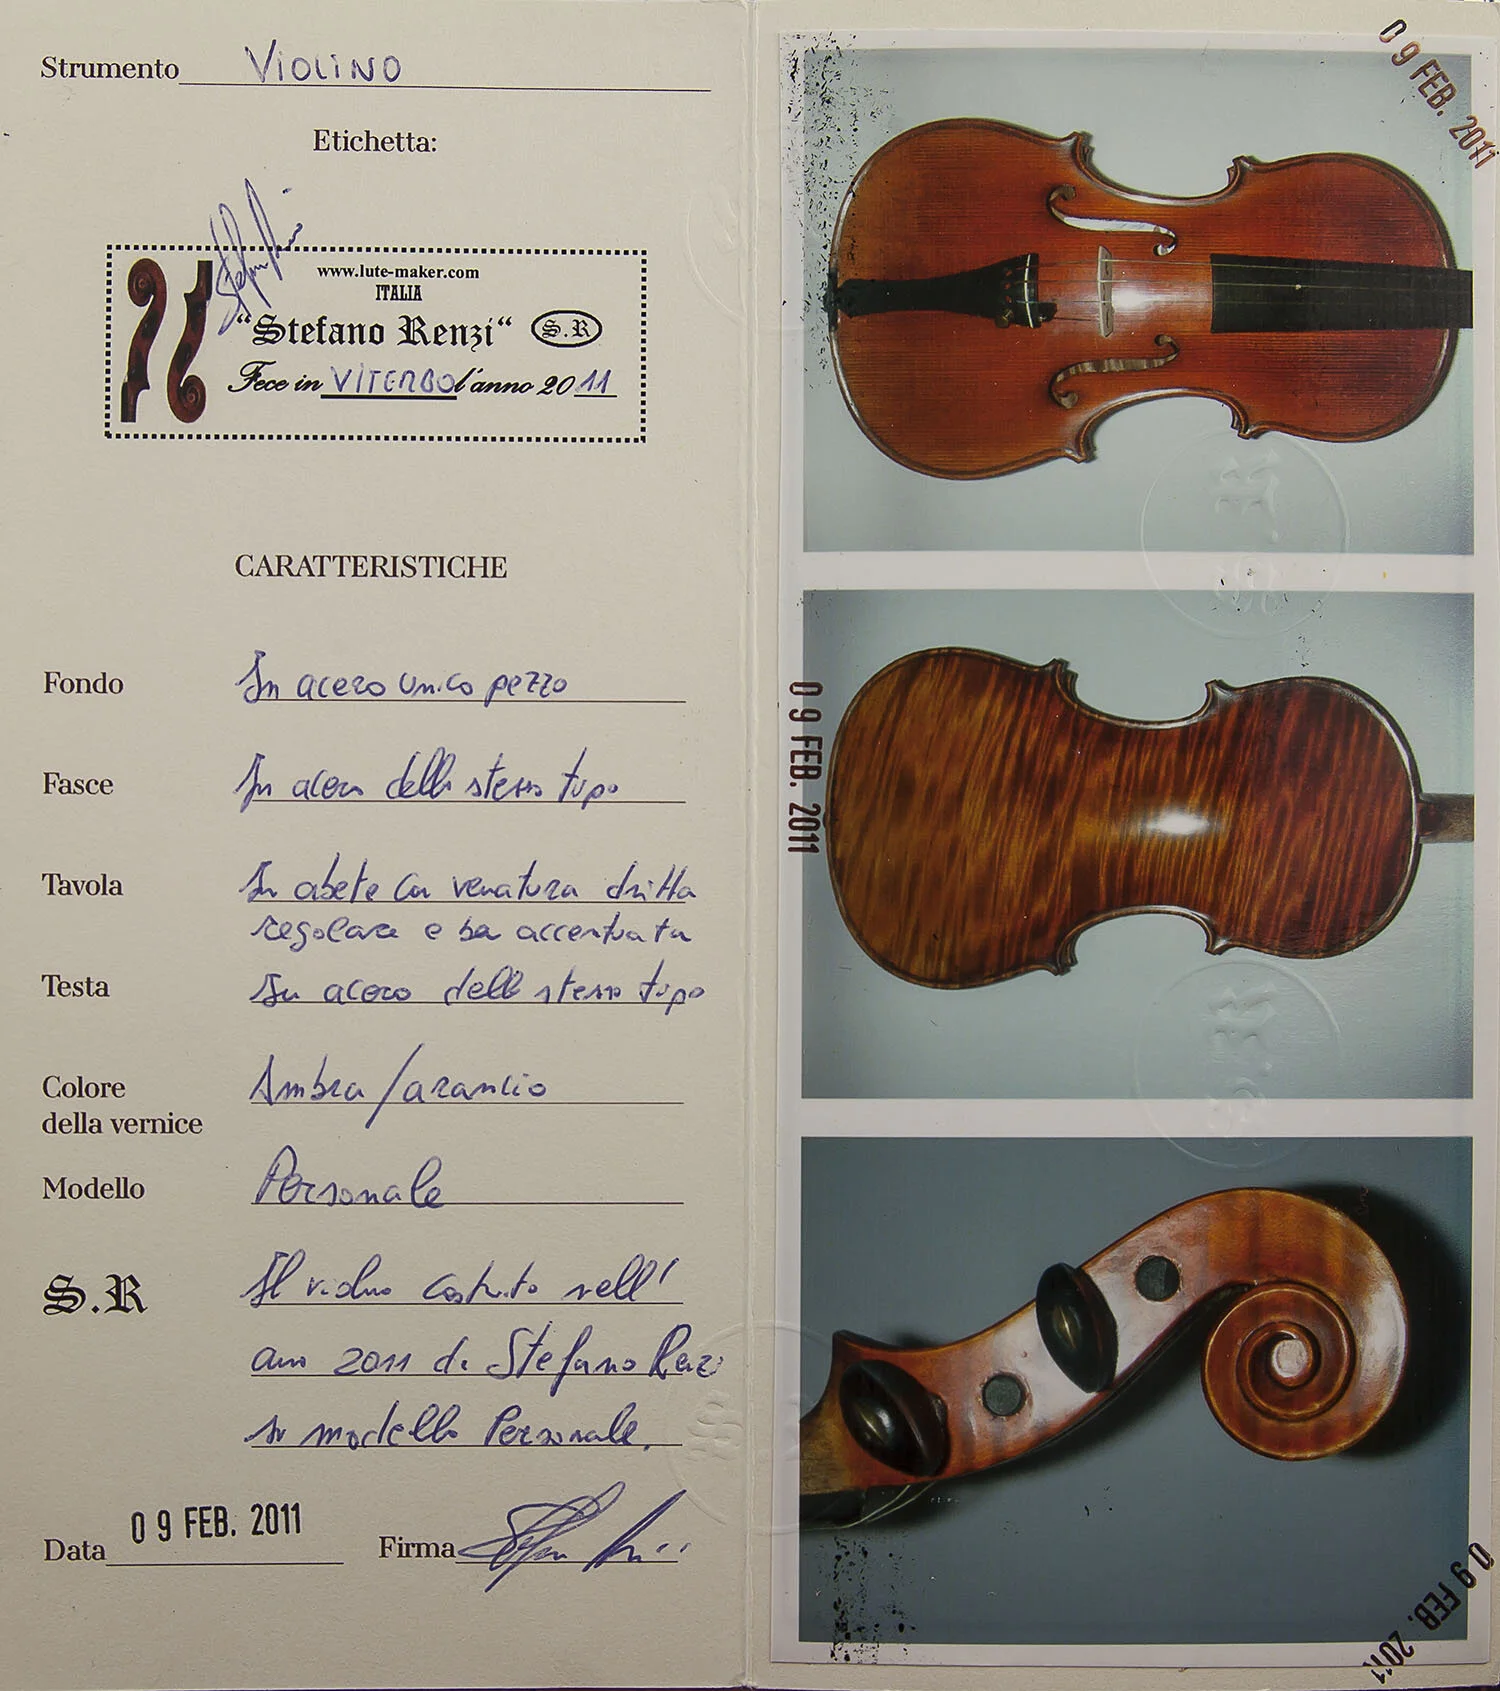 Strumento VIOLINO
Etichetta:
www.lute-maker.com
ITALIA
"Stefano Renzi" S.R
Fece in VITERBO l'anno 2011
CARATTERISTICHE
Fondo In acero unico pezzo
Fasce In acero dello stesso tipo
Tavola In abete con venatura dritta
regolare e ben accentuata
Testa In acero dello stesso tipo
Colore Ambra/arancio
della vernice
Modello Personale
S.R Il violino costruito nell'
anno 2011 di Stefano Renzi
su modello Personale.
Data 09 FEB. 2011 Firma
09 FEB. 2011
09 FEB. 2011
09 FEB. 2011
S.R
S.R